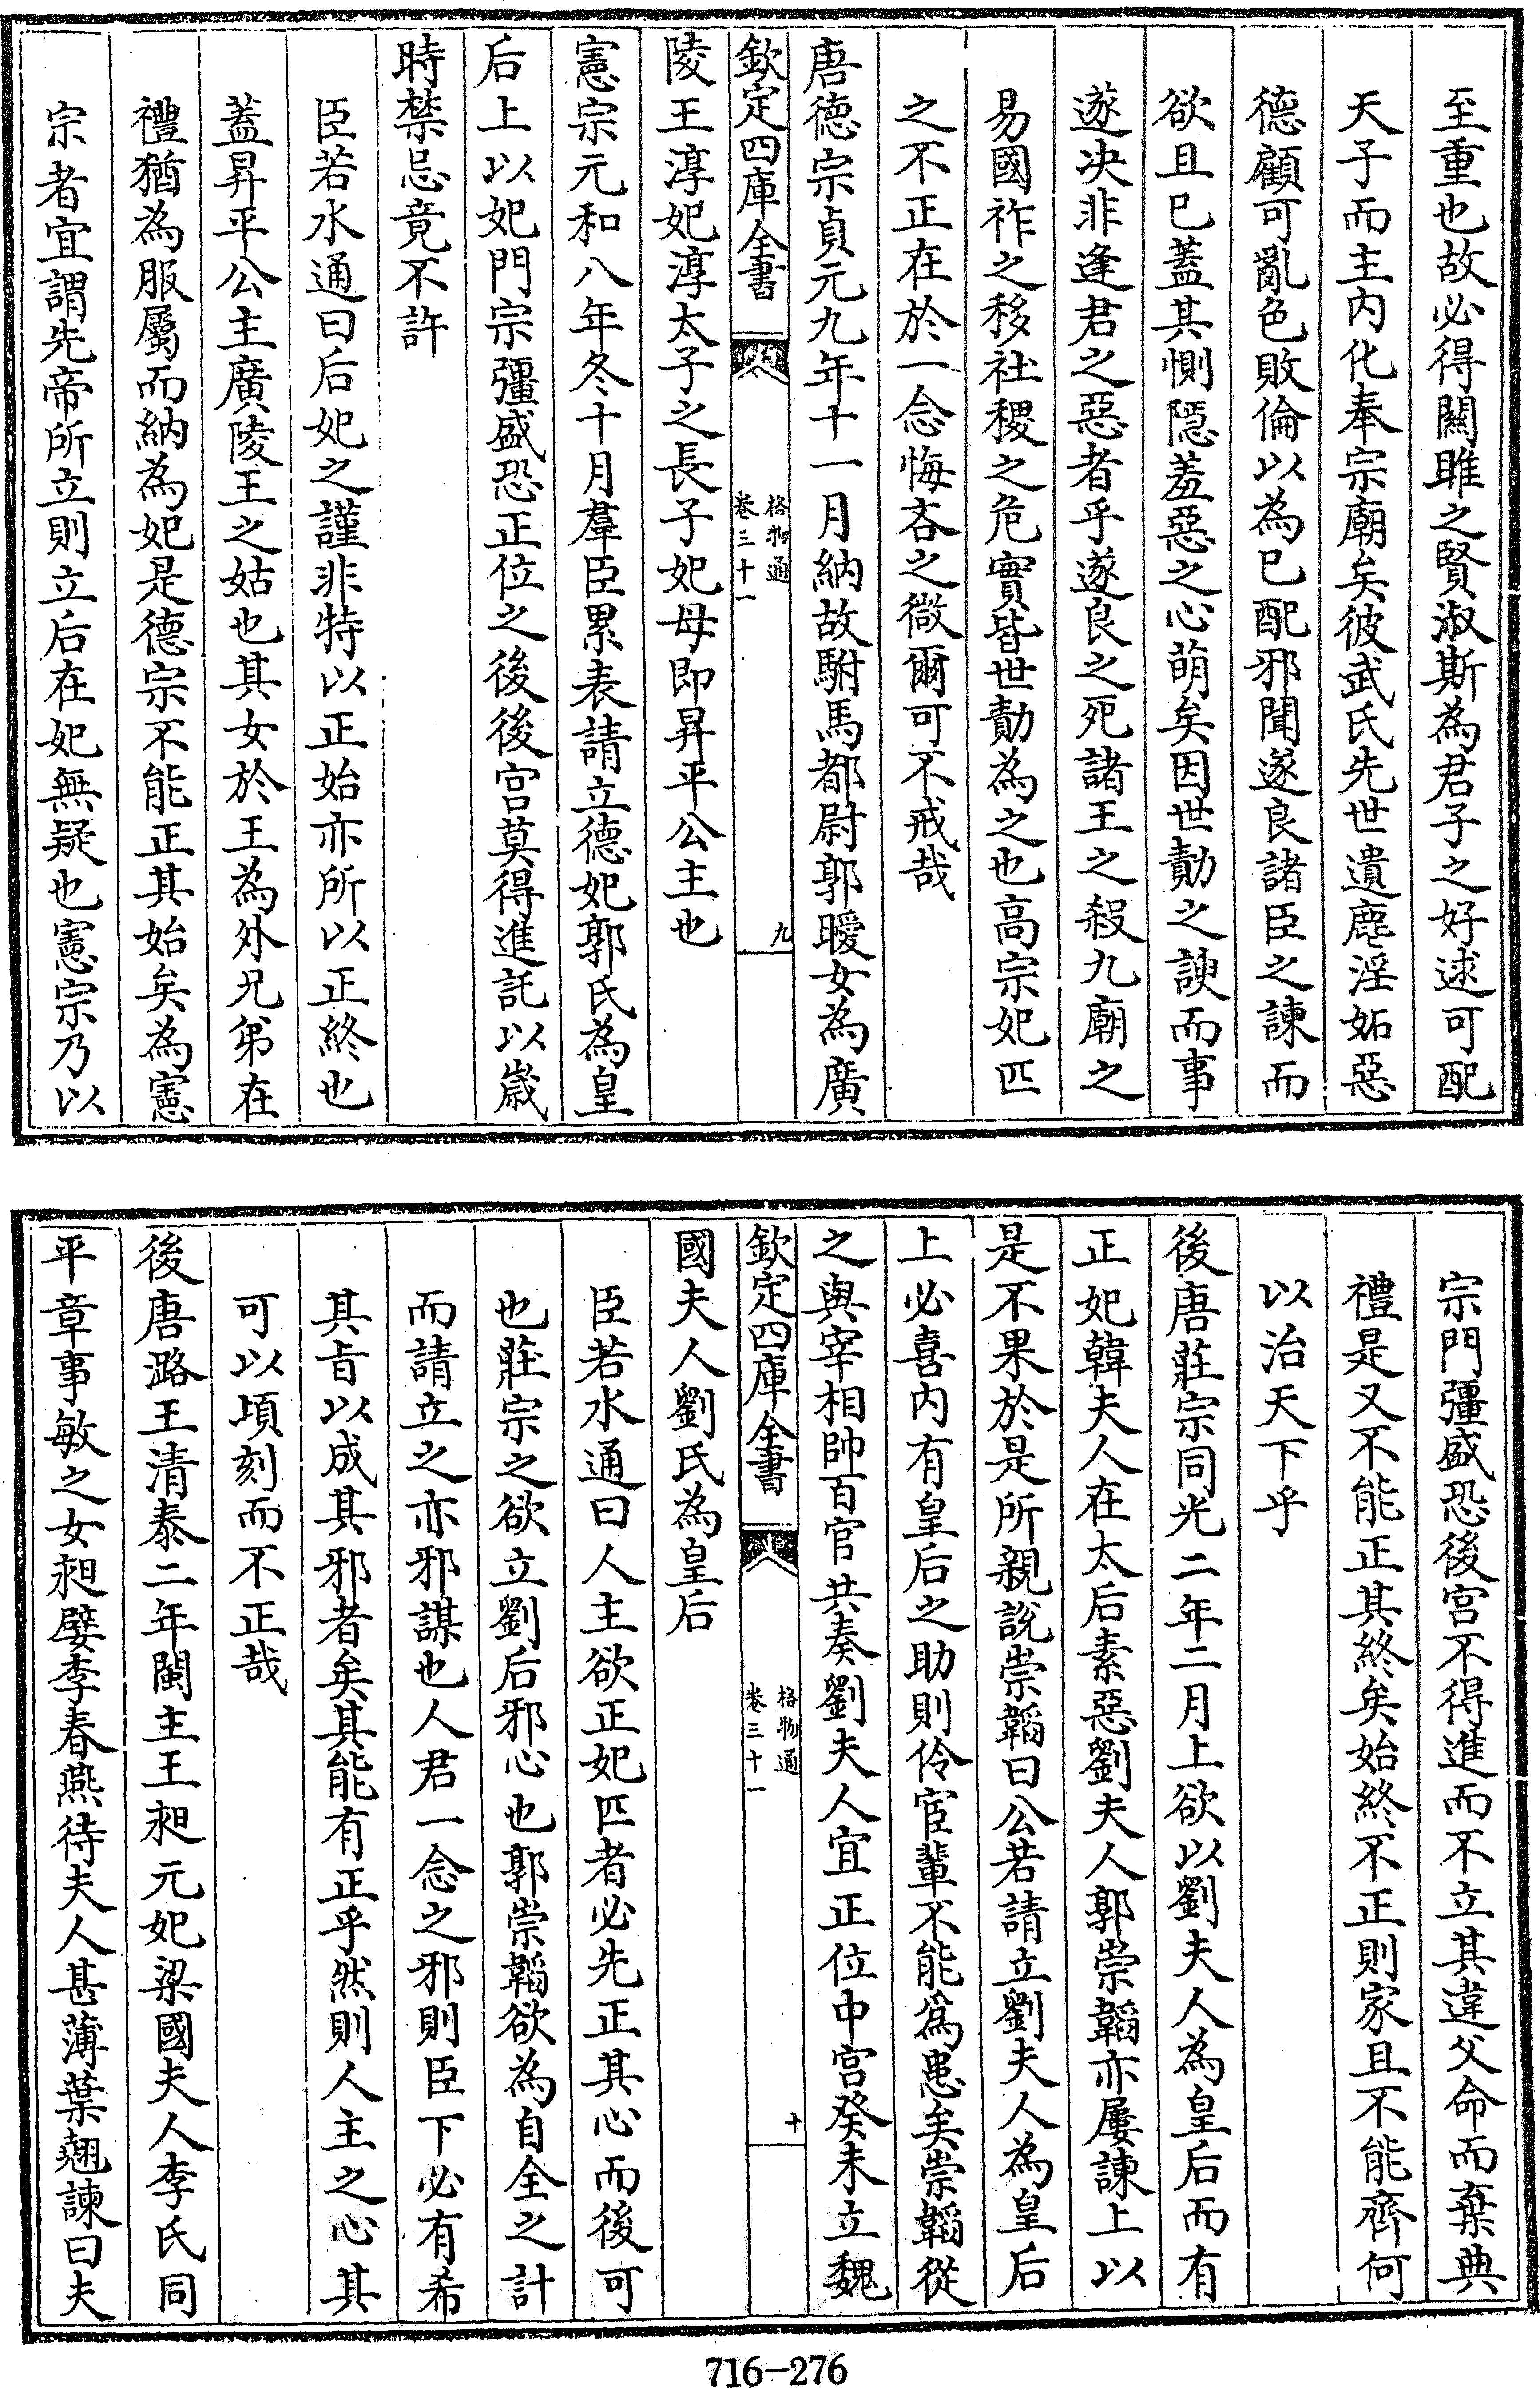 至重也故必得關雎之賢淑斯為君子之好逑可配
天子而主内化奉宗廟矣彼武氏先世遺麀淫妬惡
德顧可亂色敗倫以為已配邪聞遂良諸臣之諫而
欲且已蓋其惻隠羞惡之心萌矣因世勣之諛而事
遂决非逢君之惡者乎遂良之死諸王之殺九廟之
易國祚之移社稷之危實皆世勣為之也高宗妃匹
之不正在於一念悔吝之㣲爾可不戒哉
唐德宗貞元九年十一月納故駙馬都尉郭曖女為廣
欽定四庫全書
格物通
卷三十一
九
陵王淳妃淳太子之長子妃母即昇平公主也
憲宗元和八年冬十月羣臣累表請立德妃郭氏為皇
后上以妃門宗彊盛恐正位之後後宫莫得進託以嵗
時禁忌竟不許
臣若水通曰后妃之謹非特以正始亦所以正終也
蓋昇平公主廣陵王之姑也其女於王為外兄弟在
禮猶為服屬而納為妃是德宗不能正其始矣為憲
宗者宜謂先帝所立則立后在妃無疑也憲宗乃以
宗門彊盛恐後宫不得進而不立其違父命而棄典
禮是又不能正其終矣始終不正則家且不能齊何
以治天下乎
後唐莊宗同光二年二月上欲以劉夫人為皇后而有
正妃韓夫人在太后素惡劉夫人郭崇韜亦屢諫上以
是不果於是所親説崇韜曰公若請立劉夫人為皇后
上必喜内有皇后之助則伶宦輩不能爲患矣崇韜從
之與宰相帥百官共奏劉夫人宜正位中宫癸未立魏
欽定四庫全書
格物通
卷三十一
十
國夫人劉氏為皇后
臣若水通曰人主欲正妃匹者必先正其心而後可
也莊宗之欲立劉后邪心也郭崇韜欲為自全之計
而請立之亦邪謀也人君一念之邪則臣下必有希
其㫖以成其邪者矣其能有正乎然則人主之心其
可以頃刻而不正哉
後唐潞王清泰二年閩主王昶元妃梁國夫人李氏同
平章事敏之女昶嬖李春燕待夫人甚薄葉翹諫曰夫
716-276